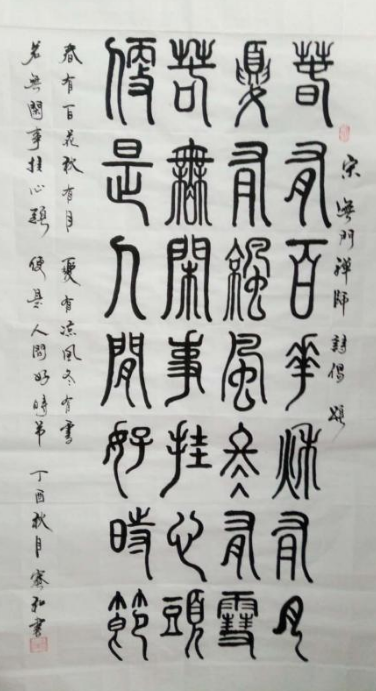 宋 無門禪師 詩偈
春有百華秋有月
夏有涼風冬有雪
若無閑事挂心頭
便是人間好時節
春有百花秋有月 夏有凉風冬有雪
若無閑事挂心頭 便是人間好時節 丁酉秋月 弘書